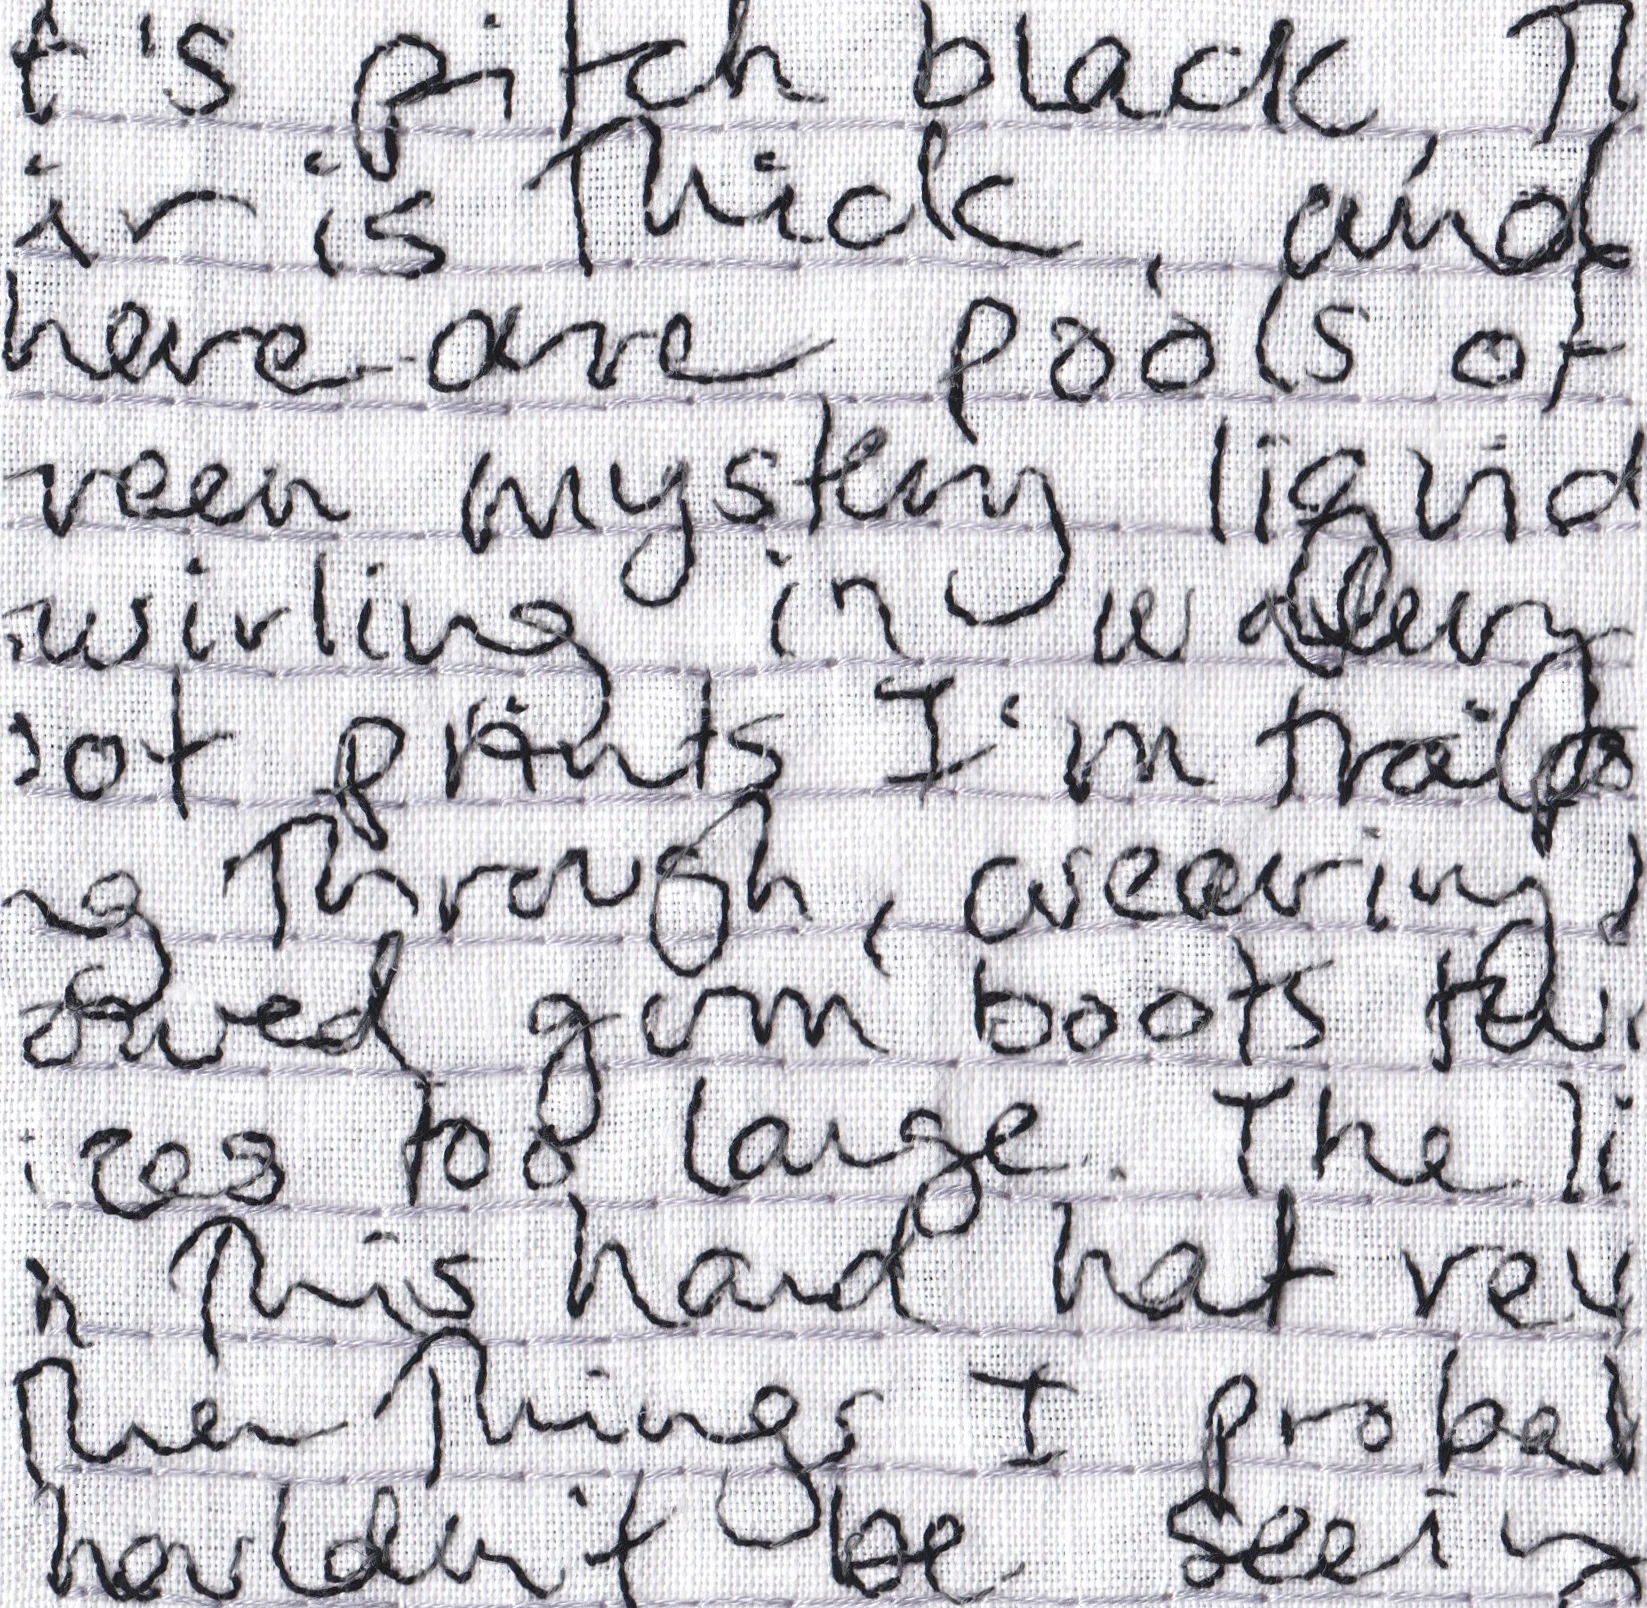 t's pitch black Th
ir is Thick, and
here are pools of
reen mystery liquid
wirling in watery
oot prints I'm trailp
ng Through, wearing
gum boots
izes too large. The li
n This hard hat rev
Ther Things I probab
houldn't be seein